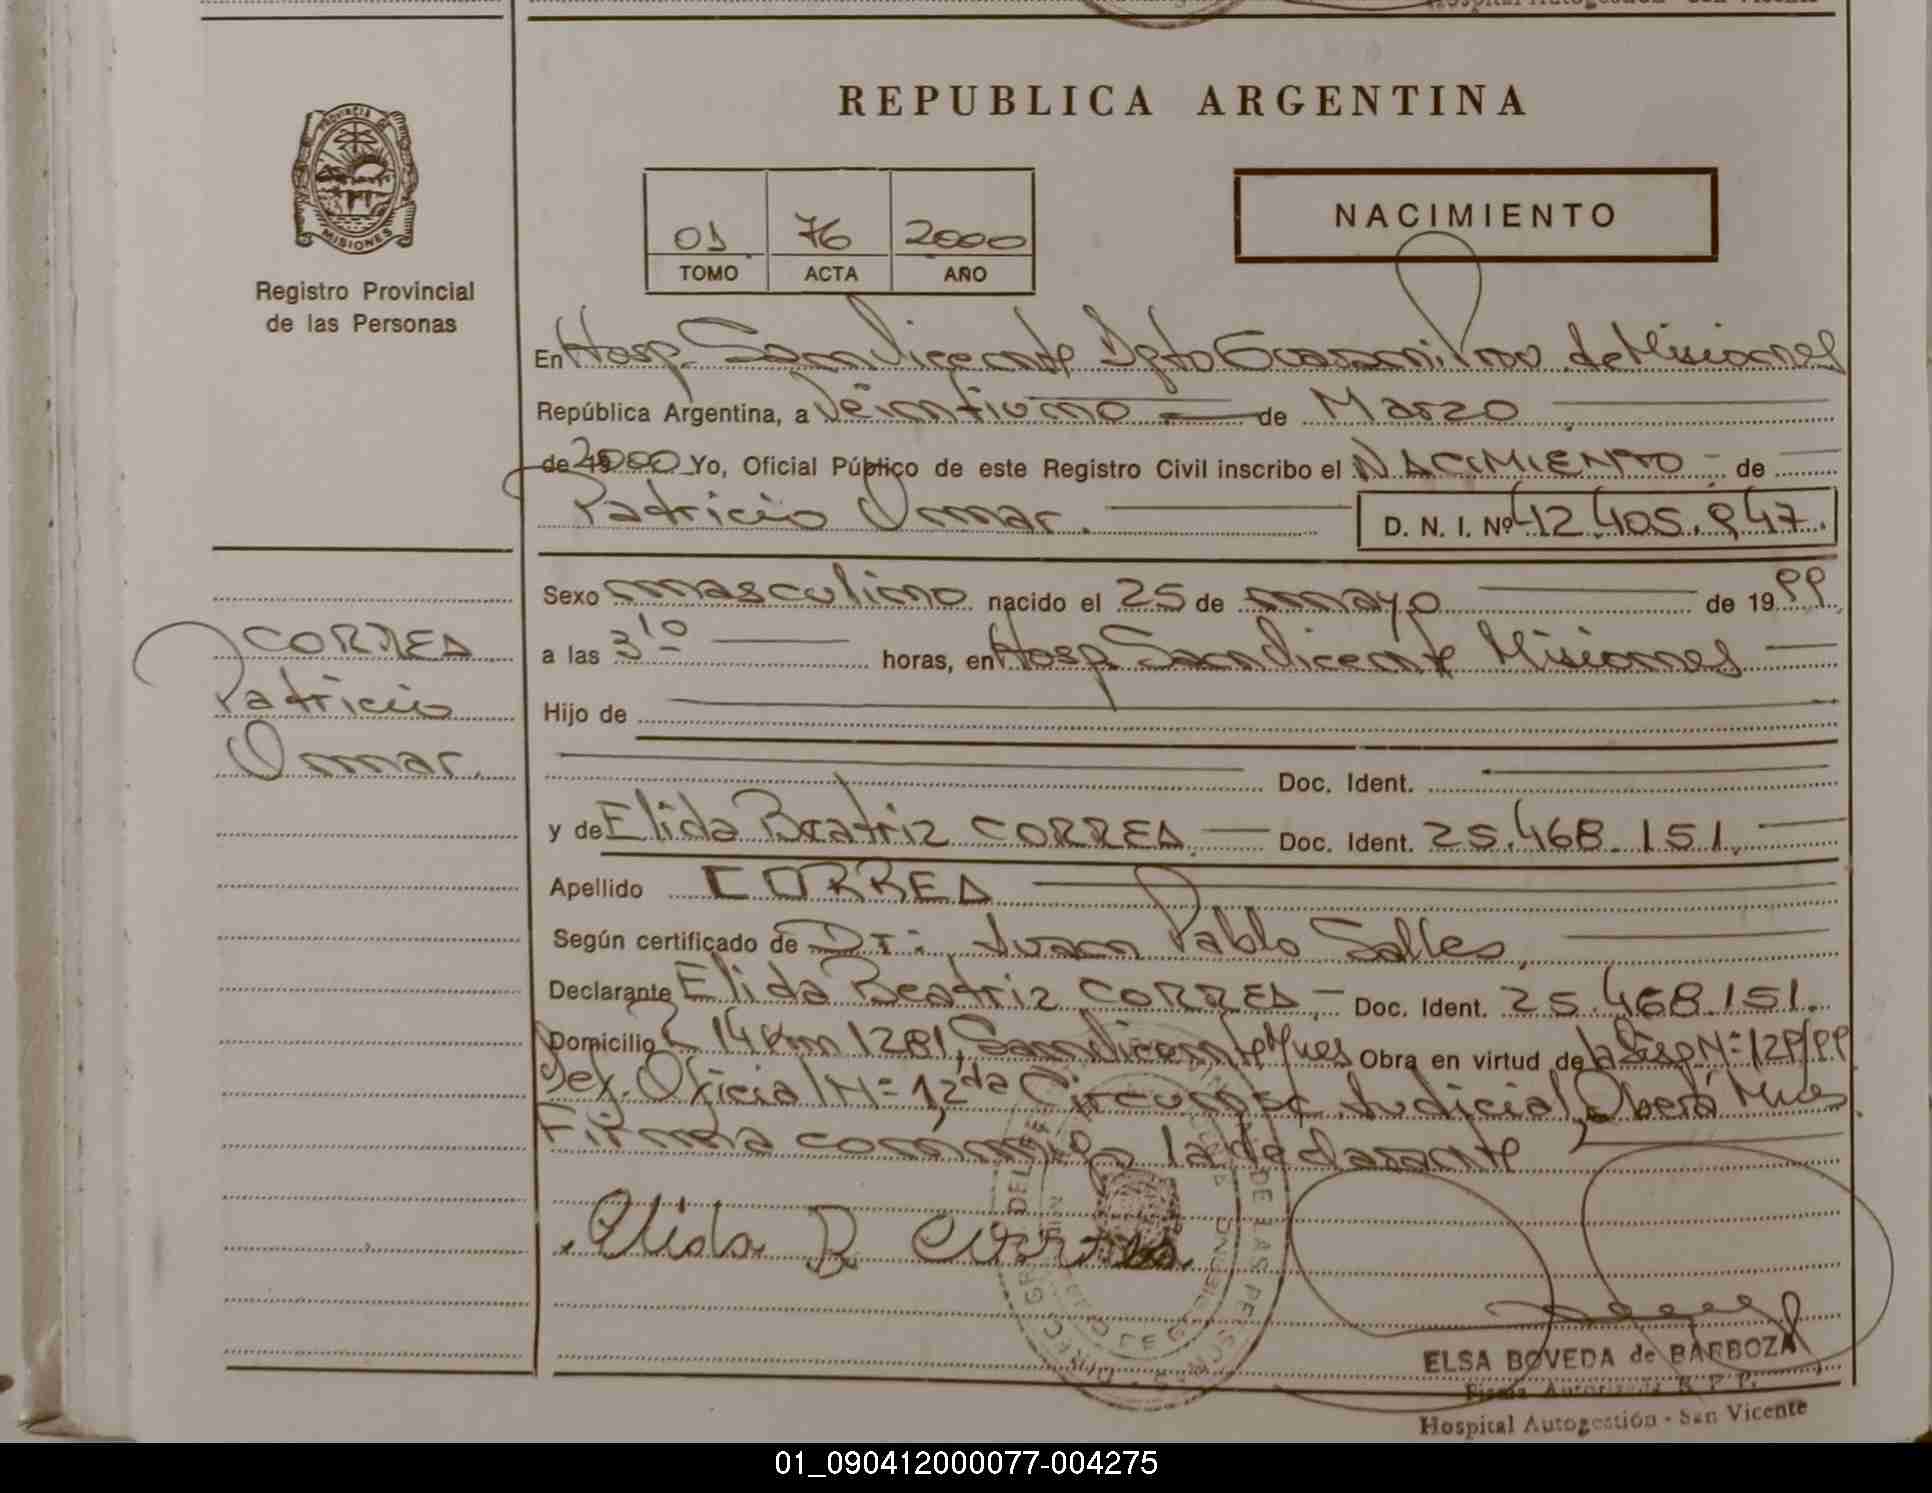 REPUBLICA ARGENTINA
PROVINCIA DE
MISIONES
Registro Provincial
de las Personas
01 76 2000
TOMO ACTA AÑO
NACIMIENTO
En Hosp. San Vicente Dpto Guaraní Prov. de Misiones
República Argentina, a Veintiuno de Marzo
de 2000 Yo, Oficial Público de este Registro Civil inscribo el NACIMIENTO de
Patricio Omar. D. N. I. Nº 42.405.947.
Sexo masculino nacido el 25 de mayo de 1999
a las 3 10 horas, en Hosp. San Vicente Misiones
CORREA
Patricio
Omar.
Hijo de
Doc. Ident.
y de Elida Beatriz CORREA. Doc. Ident. 25.468.151.
Apellido CORREA
Según certificado de Dr: Juan Pablo Salles
Declarante Elida Beatriz CORREA Doc. Ident. 25.468.151.
Domicilio 14 Km 1281, San Vicente Mnes Obra en virtud de la Disp Nº 129/99
Def. Oficial Nº 1, 2da Circunsc. Judicial, Oberá Mnes.
Firma conmigo la declarante
Elida B Correa
ELSA BOVEDA de BARBOZA
Firma Autorizada R. P. P.
Hospital Autogestión - San Vicente
01_090412000077-004275